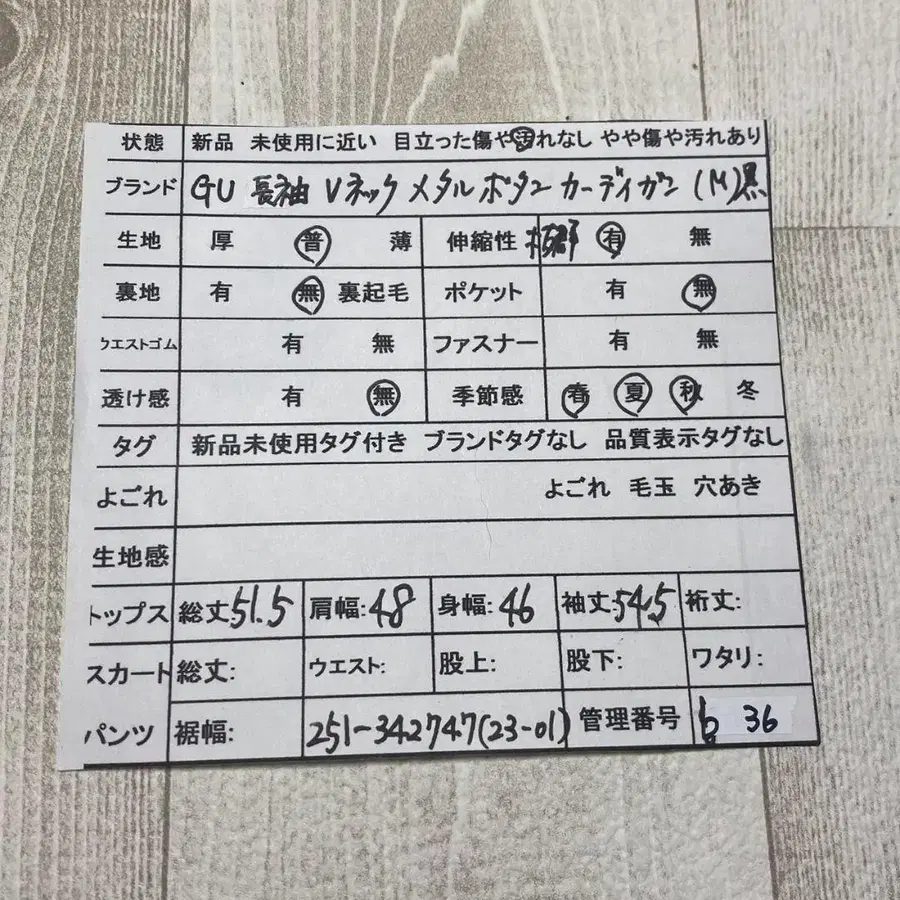 状態 新品 未使用に近い 目立った傷や汚れなし やや傷や汚れあり
ブランド GU 長袖 Vネック メタルボタン カーディガン (M)黒
生地 厚 普 薄 伸縮性 有 無
裏地 有 無 裏起毛 ポケット 有 無
ウエストゴム 有 無 ファスナー 有 無
透け感 有 無 季節感 春 夏 秋 冬
タグ 新品未使用タグ付き ブランドタグなし 品質表示タグなし
よごれ よごれ 毛玉 穴あき
生地感
トップス 総丈51.5 肩幅:48 身幅:46 袖丈:54.5 裄丈:
スカート 総丈: ウエスト: 股上: 股下: ワタリ:
パンツ 裾幅: 251-342747(23-01) 管理番号 b 36